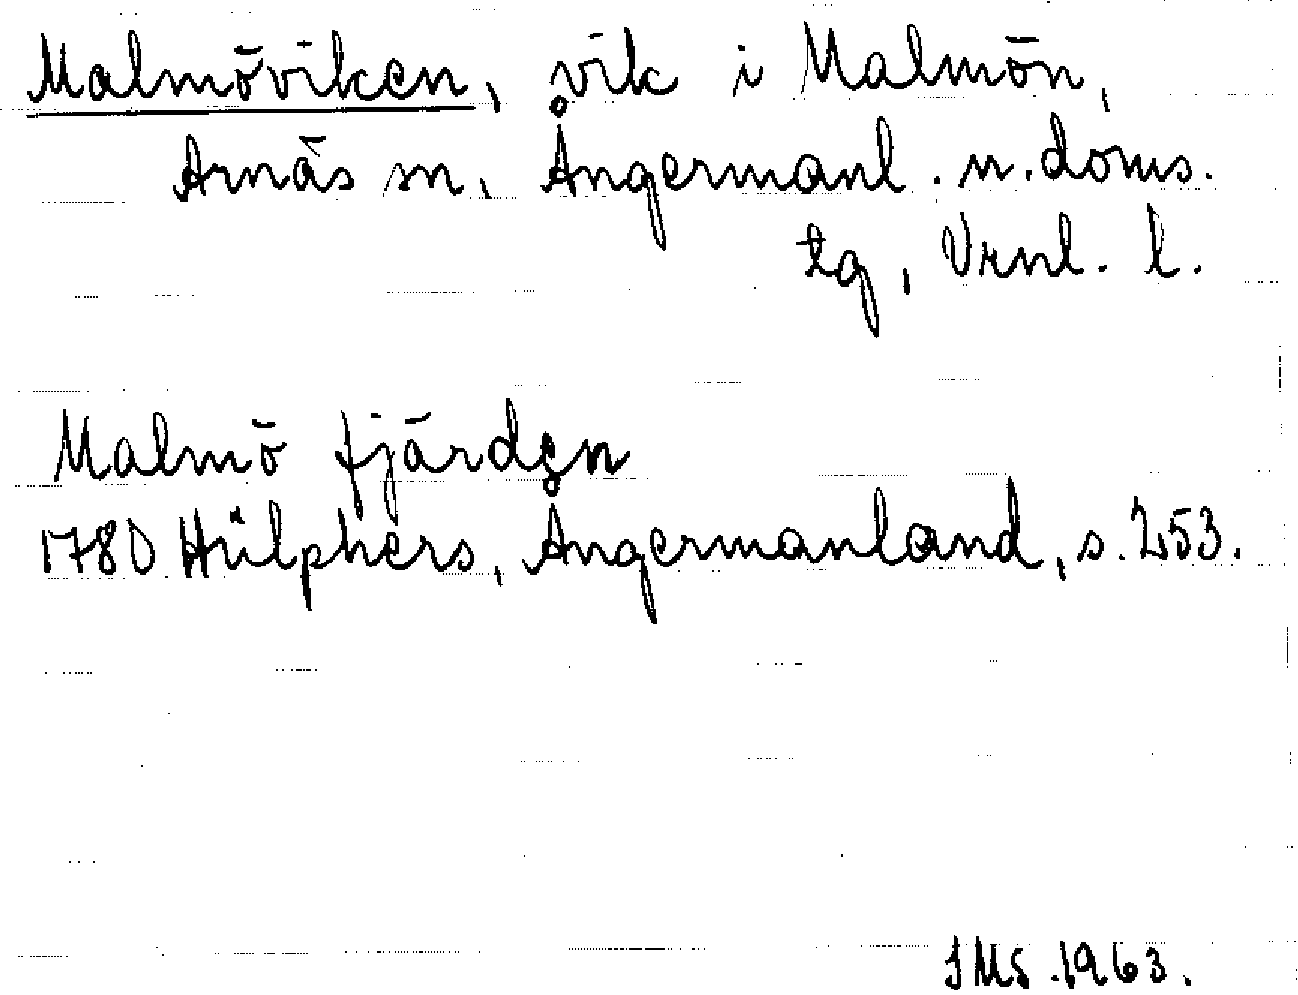 Malmöviken, vik i Malmön,
Arnäs sn, Ångermanl. n. doms.
tg, Vrnl. l.
Malmö fjärden
1780 Hülphers, Ångermanland, s. 253.
SMS. 1963.